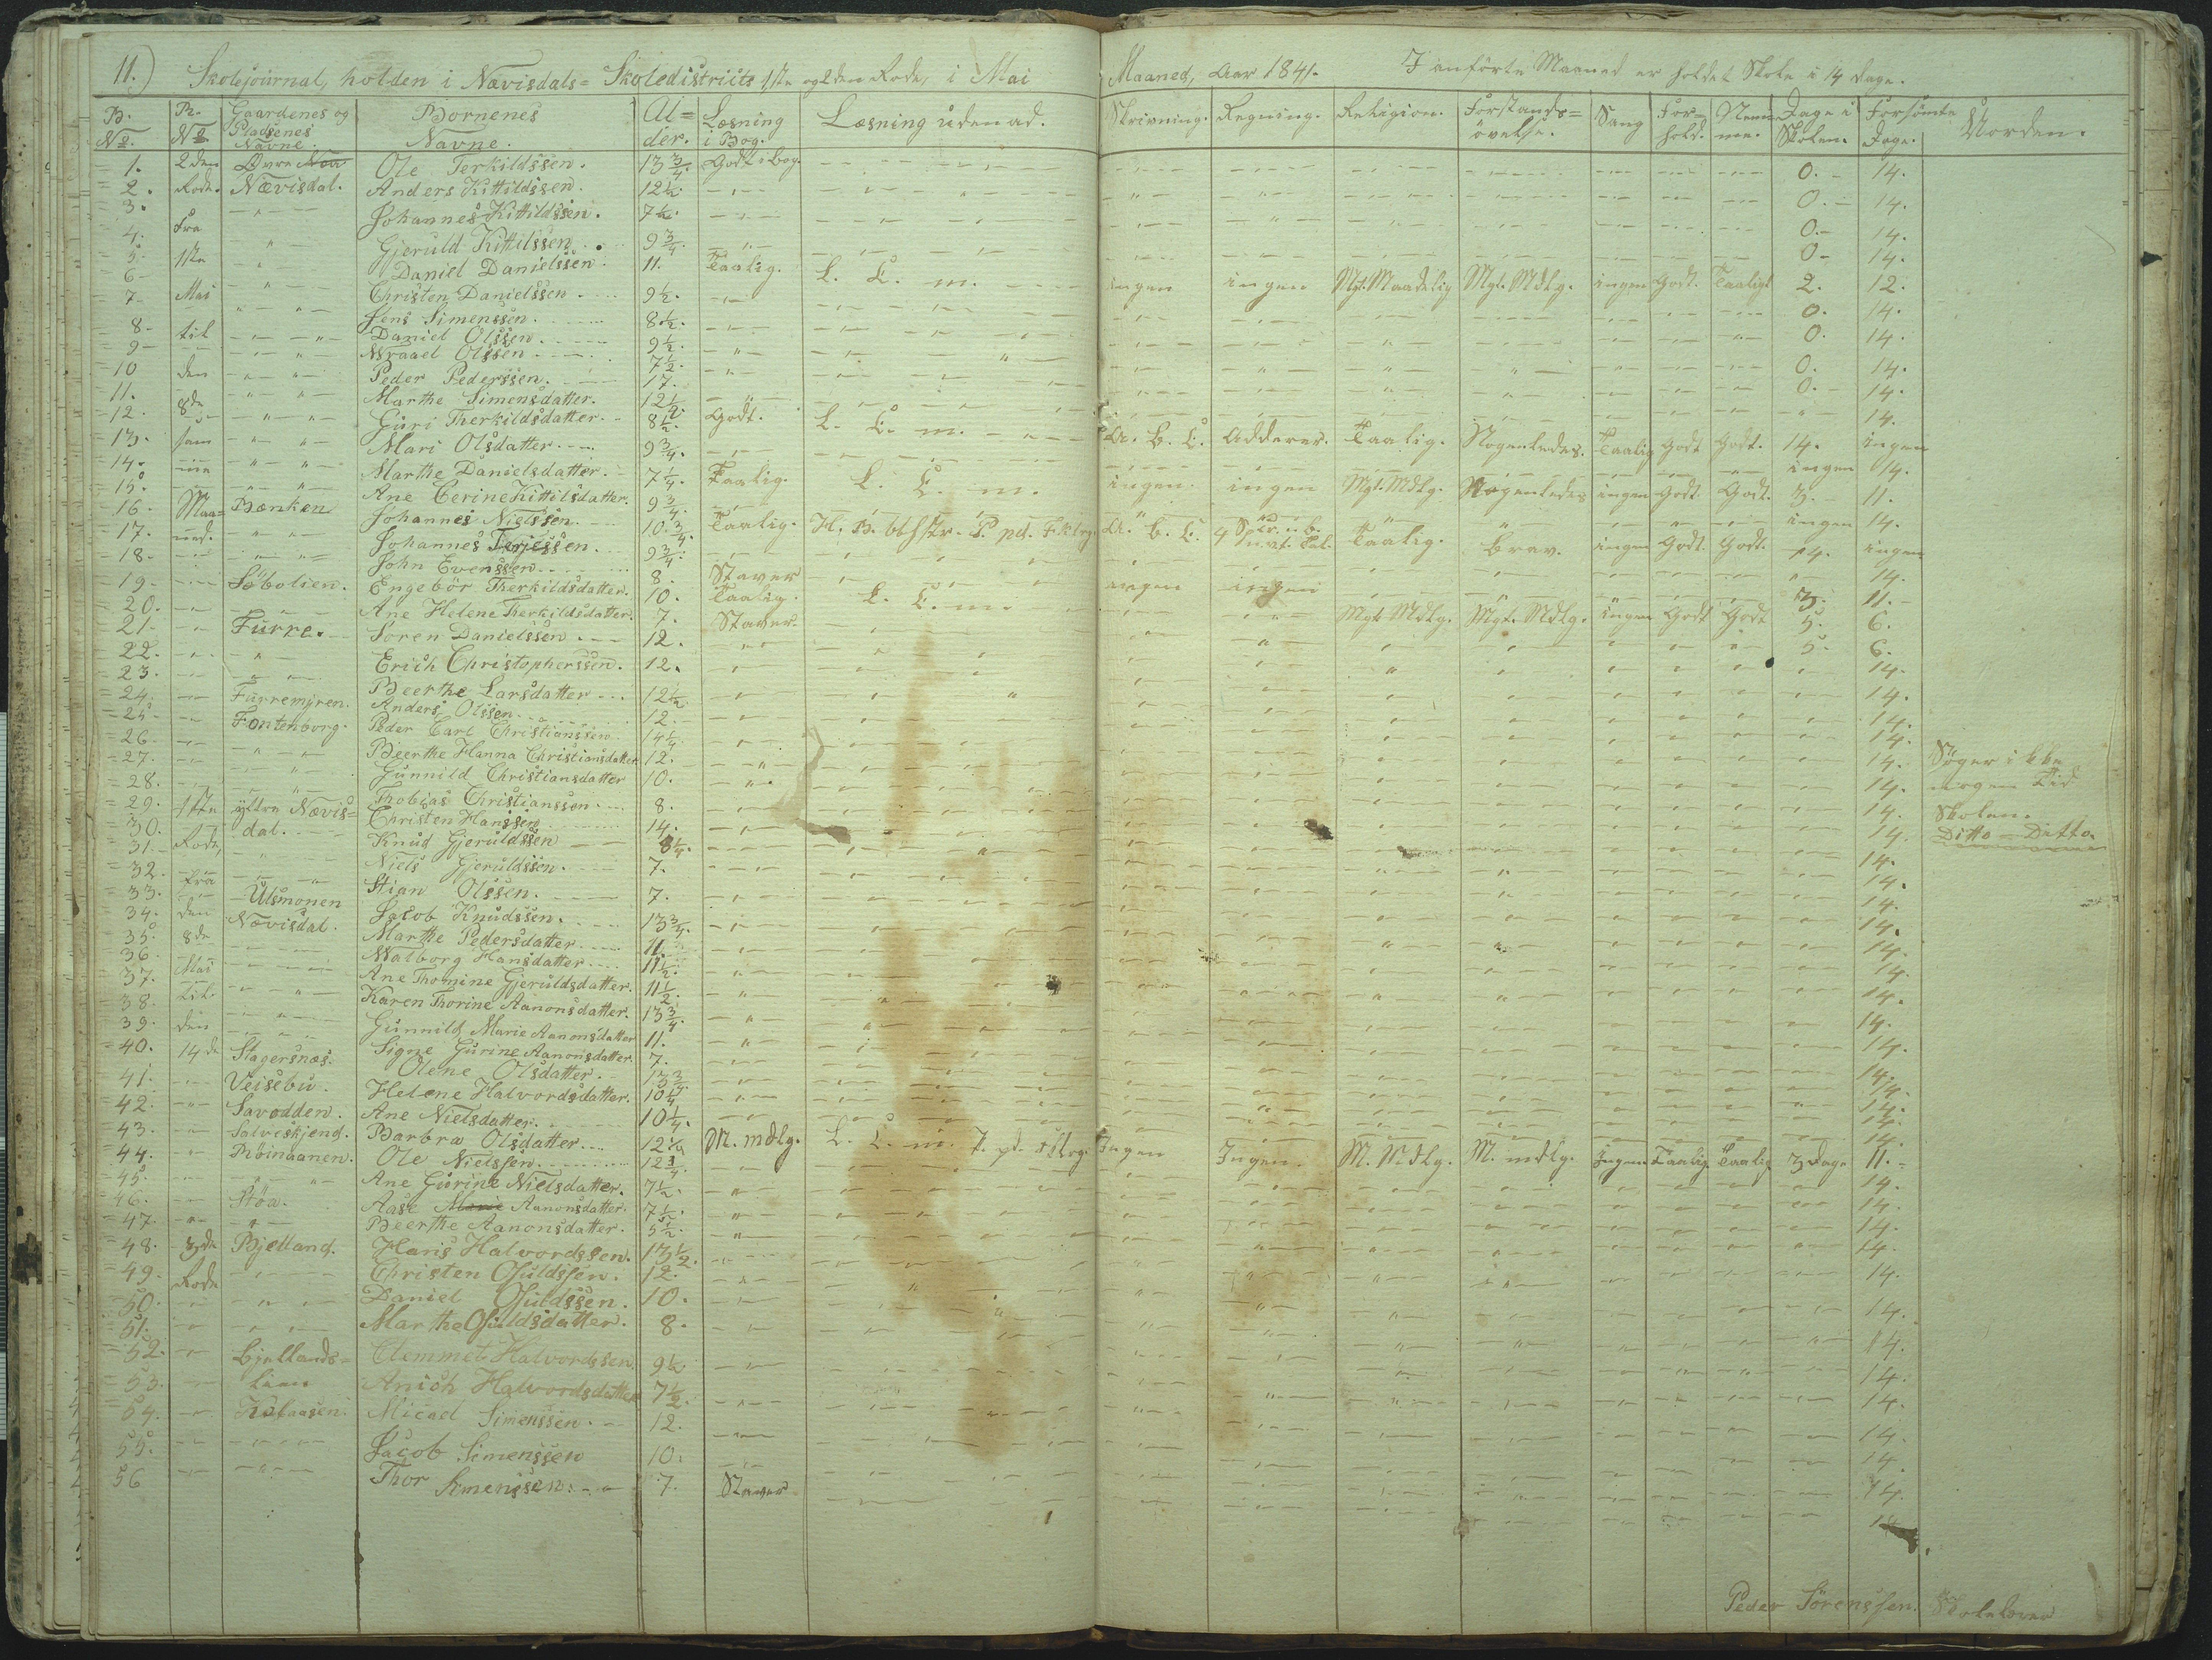 11.) Skolejournal, holden i Nævisdals= Skoledistricts 1ste og 2den Rode, i Mai Maaned, Aar 1841. I anförte Maaned er holdet Skole i 14 Dage.
B. No. R. No. Gaardenes og Pladsenes Navne. Børnenes Navne. Al=der. Læsning i Bog. Læsning udenad. Skrivning. Regning. Religion. Forstands=övelse. Sang For=hold. Nem=me. Dage i Skolen. Forsömte Dage. Uorden.
1. 2den Øvre Ole Terkildssen. 13 3/4 Godt i bog. 0. 14.
2. Rode. Nævisdal. Anders Kittildssen. 12 1/2. 0. 14.
3. Johannes Kittildssen. 7 1/2. 0. 14.
4. Fra Gjeruld Kittilssen. 9 3/4. 0 14.
5. 1ste Daniel Danielssen. 11. Taalig. L. C. m. ingen ingen Mgt. Maadelig Mgt. Mdlg. ingen Godt. Taaligt 2. 12.
6 Christen Danielssen. 9 1/2. 0. 14.
7 Mai Jens Simenssen. 8 1/2. 0. 14.
8 til Daniel Olssen. 9 1/2. 0. 14.
9 Wraael Olssen. 7 1/2. 0. 14.
10 den Peder Pederssen. 17. 14.
11. Marthe Simensdatter. 12 1/2. Godt. L. C. m. A. b. C. Adderer. Taalig. Nogenledes. Taalig Godt Godt. 14. ingen
12. 8de Guri Therkildsdatter. 8 1/2. ingen 14.
13. sam Mari Olsdatter. 9 3/4. Taalig. L. C. m. ingen. ingen Mgt. Mdlg. Nogenledes ingen Godt. Godt. 3. 11.
14. me Marthe Danielsdatter. 7 1/4. ingen 14.
15. Ane Cerine Kittilsdatter. 9 3/4. Taalig. A. b. C. Taalig. Brav. ingen Godt. Godt. 14. ingen
16. Maa= Bænken Johannes Nielssen. 10 3/4. 14.
17. ned. Johannes Terjessen. 9 3/4. Staver ingen ingen 3. 11.
18. John Evenssen. 8. Taalig. L. C. m. Mgt. Mdlg. Mgt. Mdlg. ingen Godt Godt 5. 6.
19. Söbolien. Engebör Therkildsdatter. 10. Staver. 5. 6.
20. Ane Helene Therkildsdatter. 7. 14.
21. Furre. Soren Danielssen. 12. 14.
22. Erich Christopherssen. 12. 14.
23. Beerthe Larsdatter. 12 1/2. 14.
24. Furremyren. Anders Olssen. 12. 14.
25. Fontenborg. Peder Carl Christianssen. 14 1/4. 14. Söger ikke
26. Beerthe Hanna Christiansdatter 12. 14. nogen Tid
27. Gunnild Christiansdatter 10. 14. Skolen.
28. Thobias Christianssen. 8. 14. Ditto Ditto.
29. 1ste yttre Nævis= Christen Hanssen. 14. 14.
30. dal. Knud Gjeruldssen 8 1/4. 14.
31. Rode, Niels Gjeruldssen. 7. 14.
32. fra Stian Olssen. 7. 14.
33. Ulsmonen Jacob Knudssen. 13 3/4. 14.
34. den Nævisdal. Marthe Pedersdatter. 11. 14.
35. 8de Walborg Hansdatter. 11 1/2. 14.
36. Ane Thomine Gjeruldsdatter. 11 1/2. 14.
37. Mai Karen Thorine Aanonsdatter. 13 3/4. 14.
38. til Gunnild Marie Aanonsdatter 11. 14.
39. den Signe Gurine Aanonsdatter. 7. 14.
40. 14de Stagersnæs. Olene Olsdatter. 13 3/4. 14.
41. Veisebu. Helene Halvordsdatter. 10 1/4 14.
42. Savodden. Ane Nielsdatter. 10 1/4. 14.
43. Salveskjend. Barbra Olsdatter. 12 1/4 M. mdlg. L. C. m. Ingen Ingen. M. Mdlg. M. mdlg. Ingen Taalig Taalig 3 Dage 11.
44. Ole Nielssen. 12 1/4. 14.
45. Ane Gurine Nielsdatter. 7 1/2. 14.
46. Stöa. Aase Marie Aanonsdatter. 7 1/2. 14.
47. Beerthe Aanonsdatter. 5 1/2. 14.
48. 3de Bjelland. Hans Halvordssen. 13 1/2. 14.
49. Rode Christen Osuldssen. 12. 14.
50. Daniel Osuldssen. 10. 14.
51. Marthe Osuldsdatter. 8. 14.
52. Bjellands= Clemmet Halvordssen. 9 1/2 14.
53. lien Anich Halvordsdatter 7 1/2. 14.
54. Micael Simenssen. 12. 14.
55. Jacob Simenssen 10. 14.
56 Thor Simenssen. 7. Staver 14
Peder Sörenssen. Skolelærer